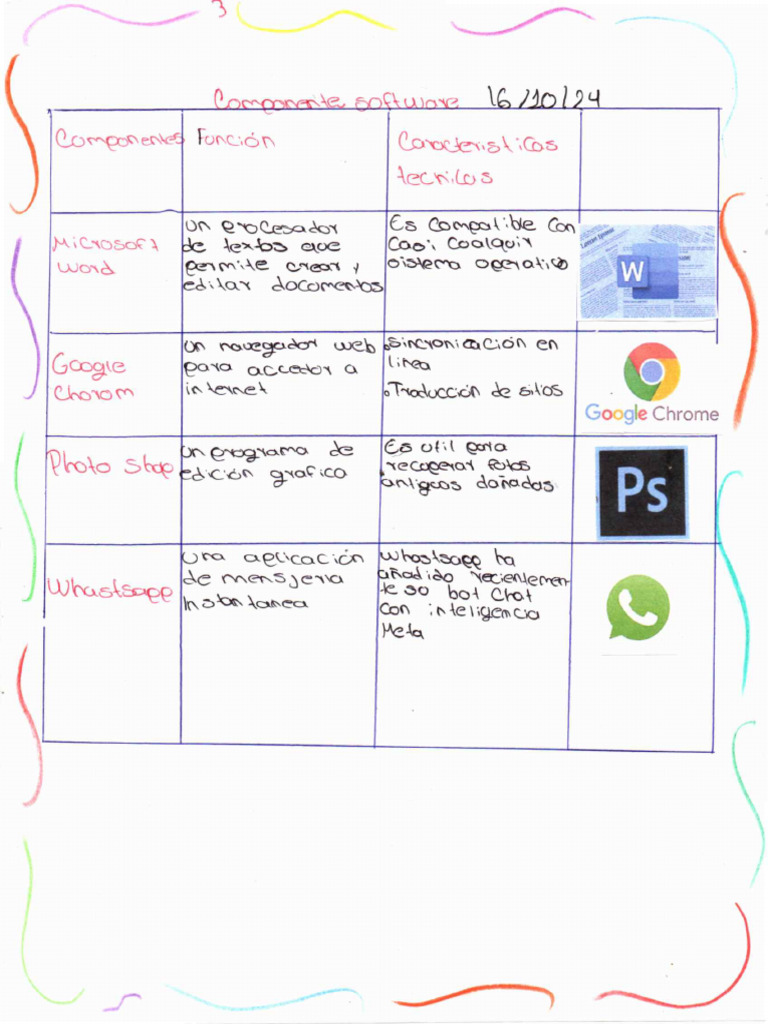 3
Componente software 16/10/24
Componentes Función Caracteristicas
tecnicas
Microsoft
word
un procesador
de textos que
permite crear y
editar documentos
Es Compatible Con
Casi Cualquir
sistema operativo
W
Google
Chorom
un navegador web
para acceder a
internet
Sincronización en
linea
Traducción de sitios
Google Chrome
Photo Shop
un programa de
edición grafica
Es util para
recuperar fotos
antigcos dañadas
Ps
Whastsapp
una aplicación
de mensjeria
instantanea
Whastsapp ha
añadido recientemen
te so bot Chat
Con inteligencia
Meta